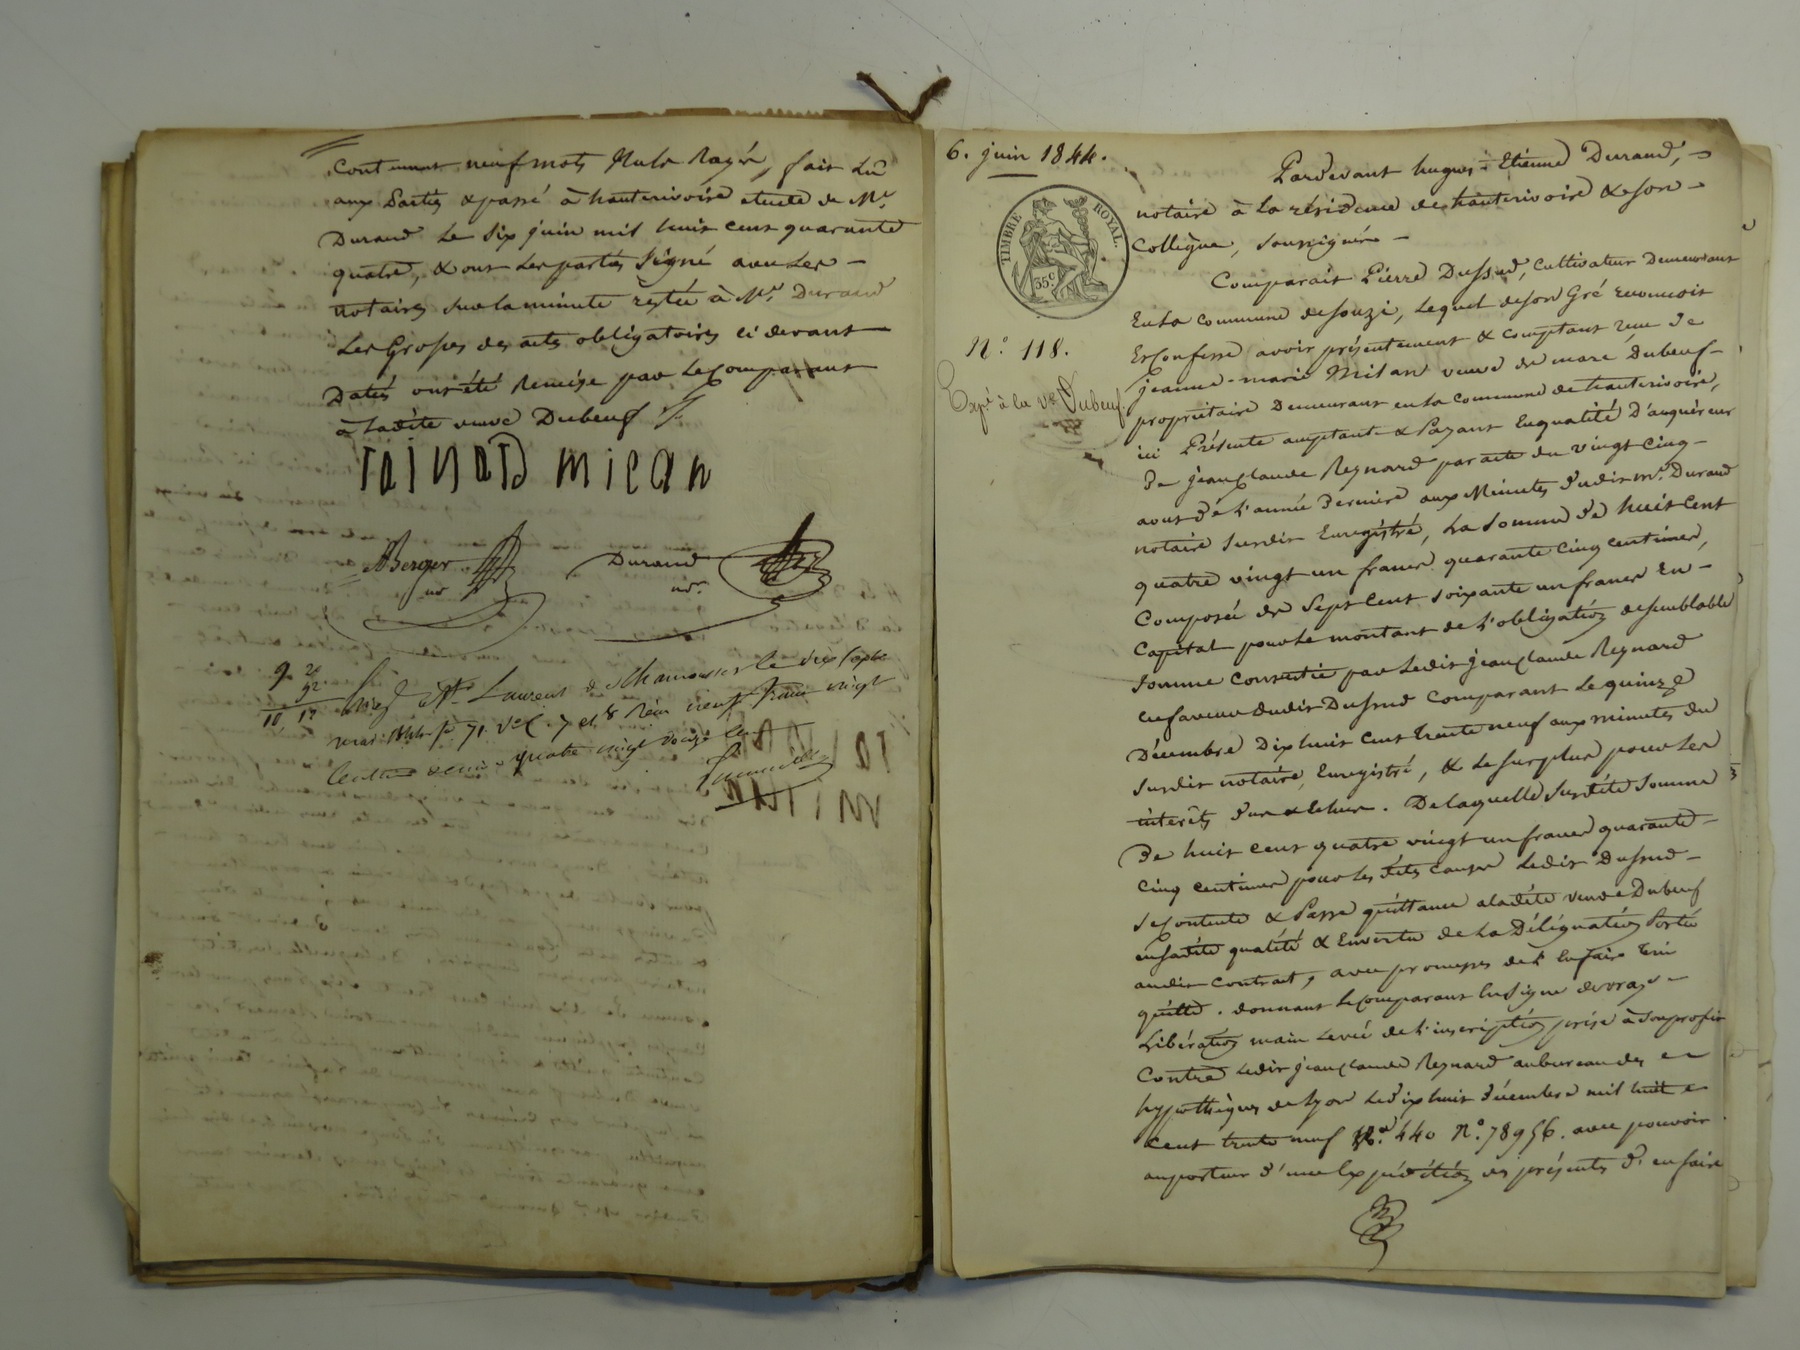 Contenant neuf mots Nuls Rayés, fait Lu
aux Parties & passé à hauterivoire etude de Mr.
Durand le Six juin mil huit cent quarante
quatre, & ont Les parties Signé avec Les –
notaires Sur la minute restée à Mr. Durand
Les Grosses des actes obligatoires ci devant
Datés ont été Remise par Le Comparant
à Ladite veuve Dubeuf
rainard milan
Berger
nre
Durand
nre.
Laurent de Chamousset le dix
quatre vingt
6. juin 1844.
TIMBRE ROYAL.
35c
N.° 118.
Expn à la ve. Dubeuf.
Pardevant hugues-Etienne Durand, –
notaire à La résidence de hauterivoire & Son –
Collègue, Soussignés –
Comparait Pierre Dussud, Cultivateur Demeurant
En la Commune de Souzi, Lequel de Son Gré reconnoit
Et Confesse avoir présentement & Comptant reçu de
jeanne-marie Milan veuve de marc Dubeuf –
propriétaire Demeurant en La Commune de hauterivoire,
ici Présente acceptant & Payant En qualité D'acquéreur
De jean Claude Reynard par acte du vingt Cinq –
aout de L'année Dernière aux Minutes dudit Mr. Durand
notaire Susdit Enregistré, La Somme De huit Cent
quatre vingt un francs quarante Cinq Centimes,
Composée de Sept Cent Soixante un francs En –
Capital pour Le montant de L'obligation de Semblable
Somme Consentie par Ledit jean Claude Reynard
en faveur dudit Dussud Comparant Le quinze
Décembre Dix huit Cent trente neuf aux minutes du
Susdit notaire, Enregistré, & Le Surplus pour Les
intérêts D'un & Échus. De Laquelle Susdite Somme
De huit Cent quatre vingt un francs quarante –
Cinq Centimes pour Les dites Causes Ledit Dussud –
Se Contente & Passe quittance a Ladite veuve Dubeuf
en Sadite qualité & En vertu de La Délégation Portée
audit Contrat, avec promesses de L'en faire tenir
quitte. donnant Le Comparant En Signe de vraye –
Libération main Levée de L'inscription prise à Son profit
Contre Ledit jean Claude Reynard au bureau des
hypothèques de Lyon Le dix huit décembre mil huit
Cent trente neuf Vol. 440 N.° 78956. avec pouvoir
au porteur d'une Expédition des présentes D'en faire